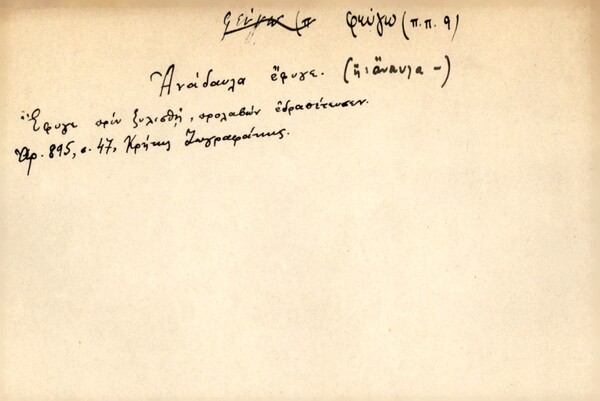 φεύγω (π.π. 9)
Ἀνάδαυλα ἔφυγε. (ἢ: ἄναυλα –)
Ἔφυγε πρὶν ξυλισθῇ, προλαβὼν
Ἀρ. 895, σ. 47, Κρήτης Ζωγραφάκης.